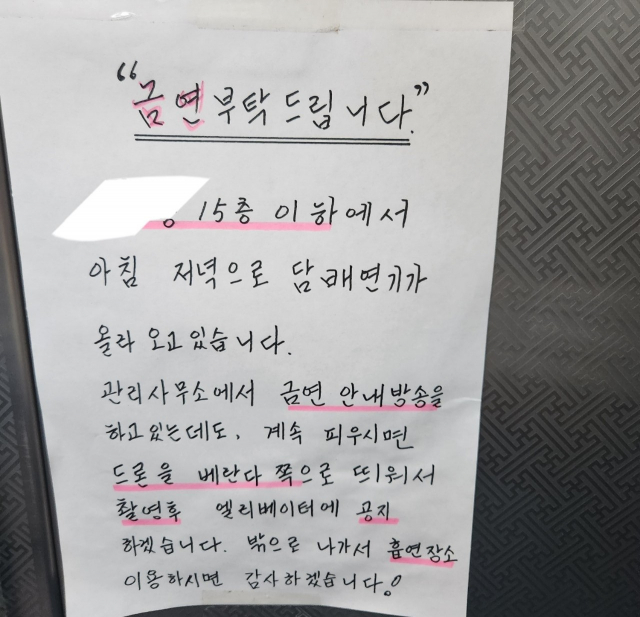 “금연 부탁드립니다.”
15층 이하에서
아침 저녁으로 담배연기가
올라 오고 있습니다.
관리사무소에서 금연 안내방송을
하고있는데도, 계속 피우시면
드론을 베란다 쪽으로 띄워서
촬영후 엘리베이터에 공지
하겠습니다. 밖으로 나가서 흡연장소
이용하시면 감사하겠습니다!